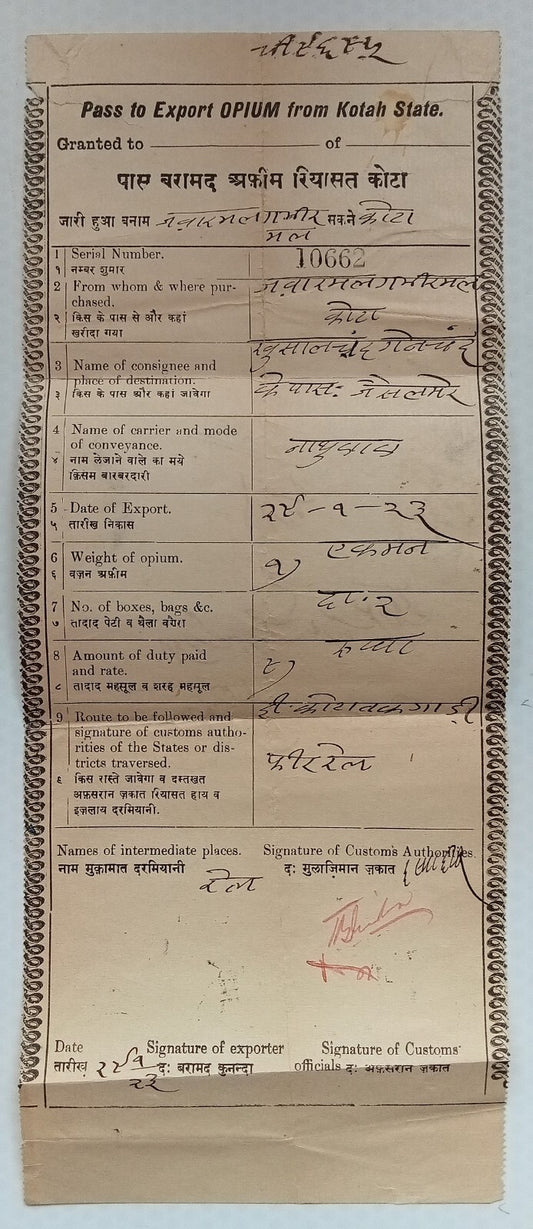 Pass to Export OPIUM from Kotah State.
Granted to of
पास बरामद अफ़ीम रियासत कोटा
जारी हुआ बनाम जवारमल गमीर सकने कोटा
मल
1 Serial Number. 10662
१ नम्बर शुमार
2 From whom & where pur- जवारमल गमीरमल
chased.
२ किस के पास से और कहां कोटा
खरीदा गया
3 Name of consignee and
place of destination.
३ किस के पास और कहां जावेगा के पास: जैसलमेर
4 Name of carrier and mode
of conveyance.
४ नाम लेजाने वाले का मये
क़िसम बारबरदारी
5 Date of Export.
५ तारीख निकास
6 Weight of opium. एक मन
६ वज़न अफ़ीम १)
7 No. of boxes, bags &c.
७ तादाद पेटी व थैला वग़ैरा
8 Amount of duty paid
and rate.
८ तादाद महसूल व शरह महसूल
9 Route to be followed and
signature of customs autho-
rities of the States or dis-
tricts traversed.
९ किस रास्ते जावेगा व दस्तखत फीर रेल
अफ़सरान ज़कात रियासत हाय व
इज़लाय दरमियानी.
Names of intermediate places. Signature of Custom's Authorities.
नाम मुक़ामात दरमियानी द: मुलाज़िमान ज़कात
रेल
Date Signature of exporter Signature of Customs'
तारीख़ द: बरामद कुनन्दा officials द: अफ़सरान ज़कात